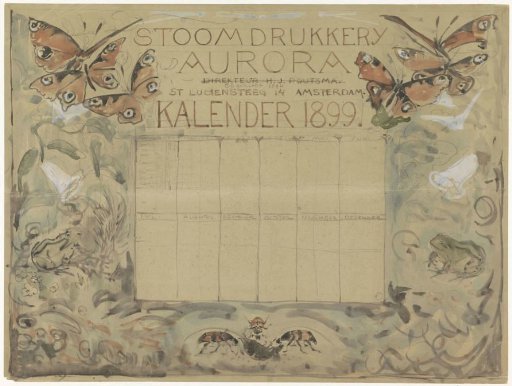 STOOMDRUKKERY
AURORA
DIREKTEUR H. J. POUTSMA.
ST LUCIENSTEEG 14 AMSTERDAM
KALENDER 1899.
JULI AUGUSTUS SEPTEMBER OCTOBER NOVEMBER DECEMBER